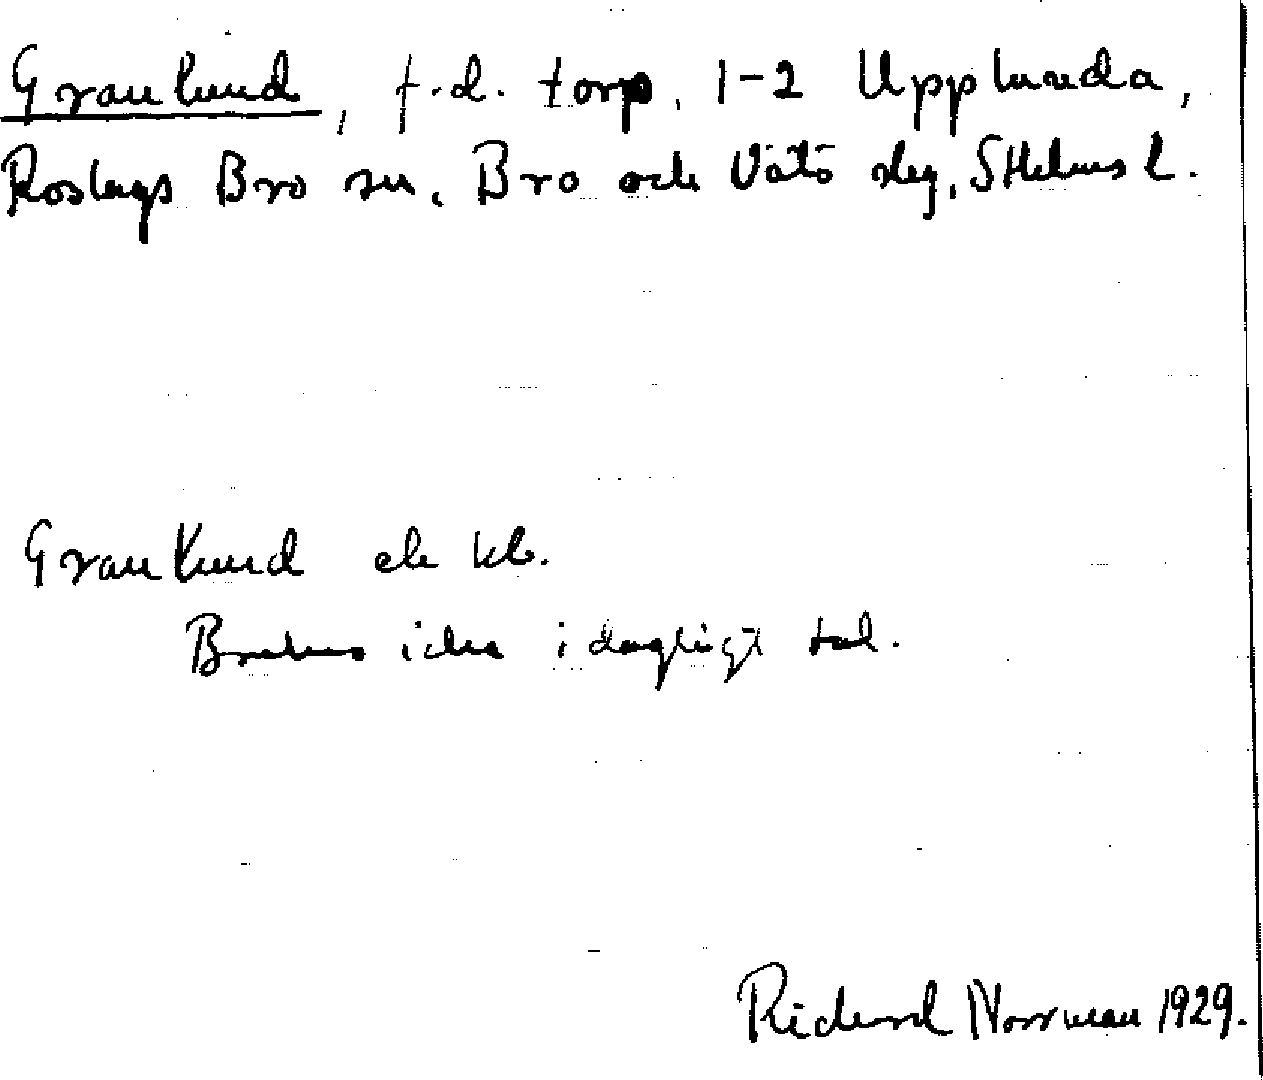 Granlund, f.d. torp, 1-2 Upplunda,
Roslags Bro sn, Bro och Vätö skg, SthlmsL.
Granlund ek kb.
Brukas icke i dagligt tal.
Richard Norrman 1929.